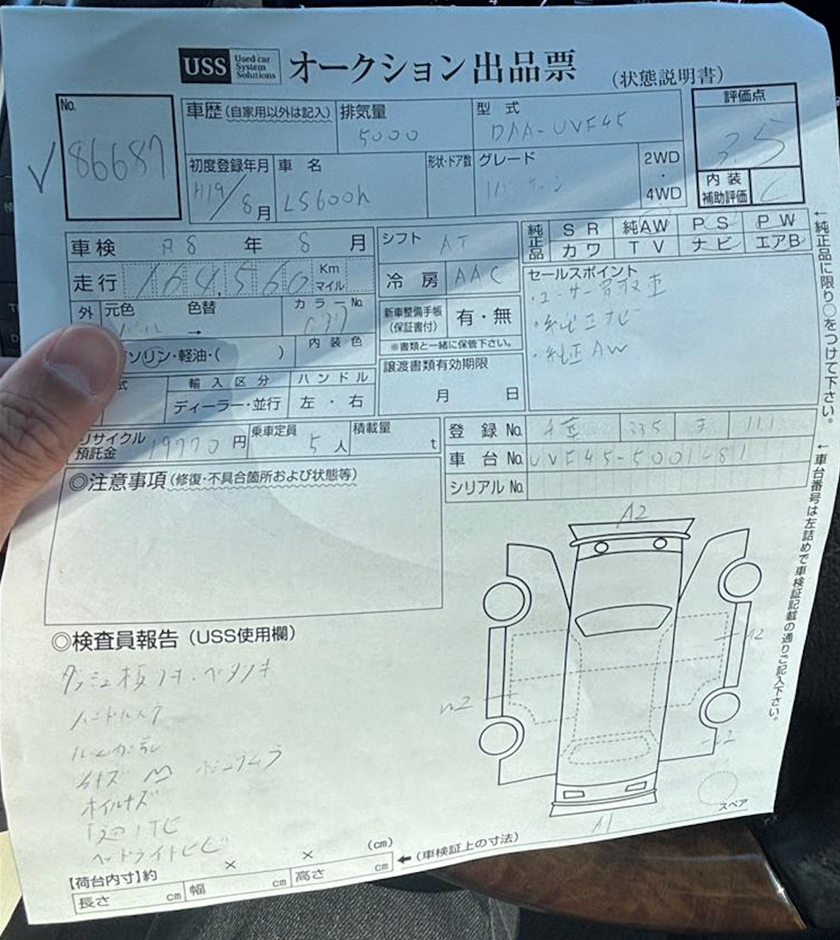 USS Used car System Solutions オークション出品票 (状態説明書)
No. 86687
車歴 (自家用以外は記入)
排気量 5000
型式 DAA-UVF45
評価点 3.5
初度登録年月 H19/8月
車名 LS600h
形状・ドア数
グレード
2WD・4WD
内装補助評価 C
車検 R8年 8月
シフト AT
純正品 SR 純AW PS PW
カワ TV ナビ エアB
走行 164,560 Km マイル
冷房 AAC
セールスポイント
・ユーサー買取車
・純正ナビ
・純正AW
外 元色 色替 →
カラーNo.
新車整備手帳(保証書付) 有・無
※書類と一緒に保管下さい。
ソリン・軽油・( )
内装色
譲渡書類有効期限 月 日
式
輸入区分 ディーラー・並行
ハンドル 左・右
リサイクル預託金 19770円
乗車定員 5人
積載量 t
登録No. 千葉 335 111
車台No. UVF45-5001
シリアルNo.
←純正品に限り○をつけて下さい。
←車台番号は左詰めで車検証記載の通りご記入下さい。
◎注意事項 (修復・不具合箇所および状態等)
A2
◎検査員報告 (USS使用欄)
ハンドルスラ
ホイルキズ
ヘッドライトヒビ
A1
スペア
【荷台内寸】約 × × (cm) ←(車検証上の寸法)
長さ cm 幅 cm 高さ cm